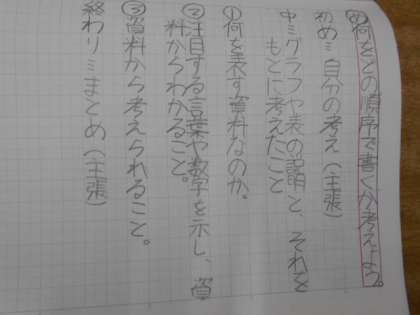 め何をどの順序で書くか考えよう。
初め…自分の考え(主張)
中…グラフや表の説明と、それを
もとに考えたこと
①何を表す資料なのか。
②注目する言葉や数字を示し、資
料からわかること。
③資料から考えられること。
終わり…まとめ(主張)